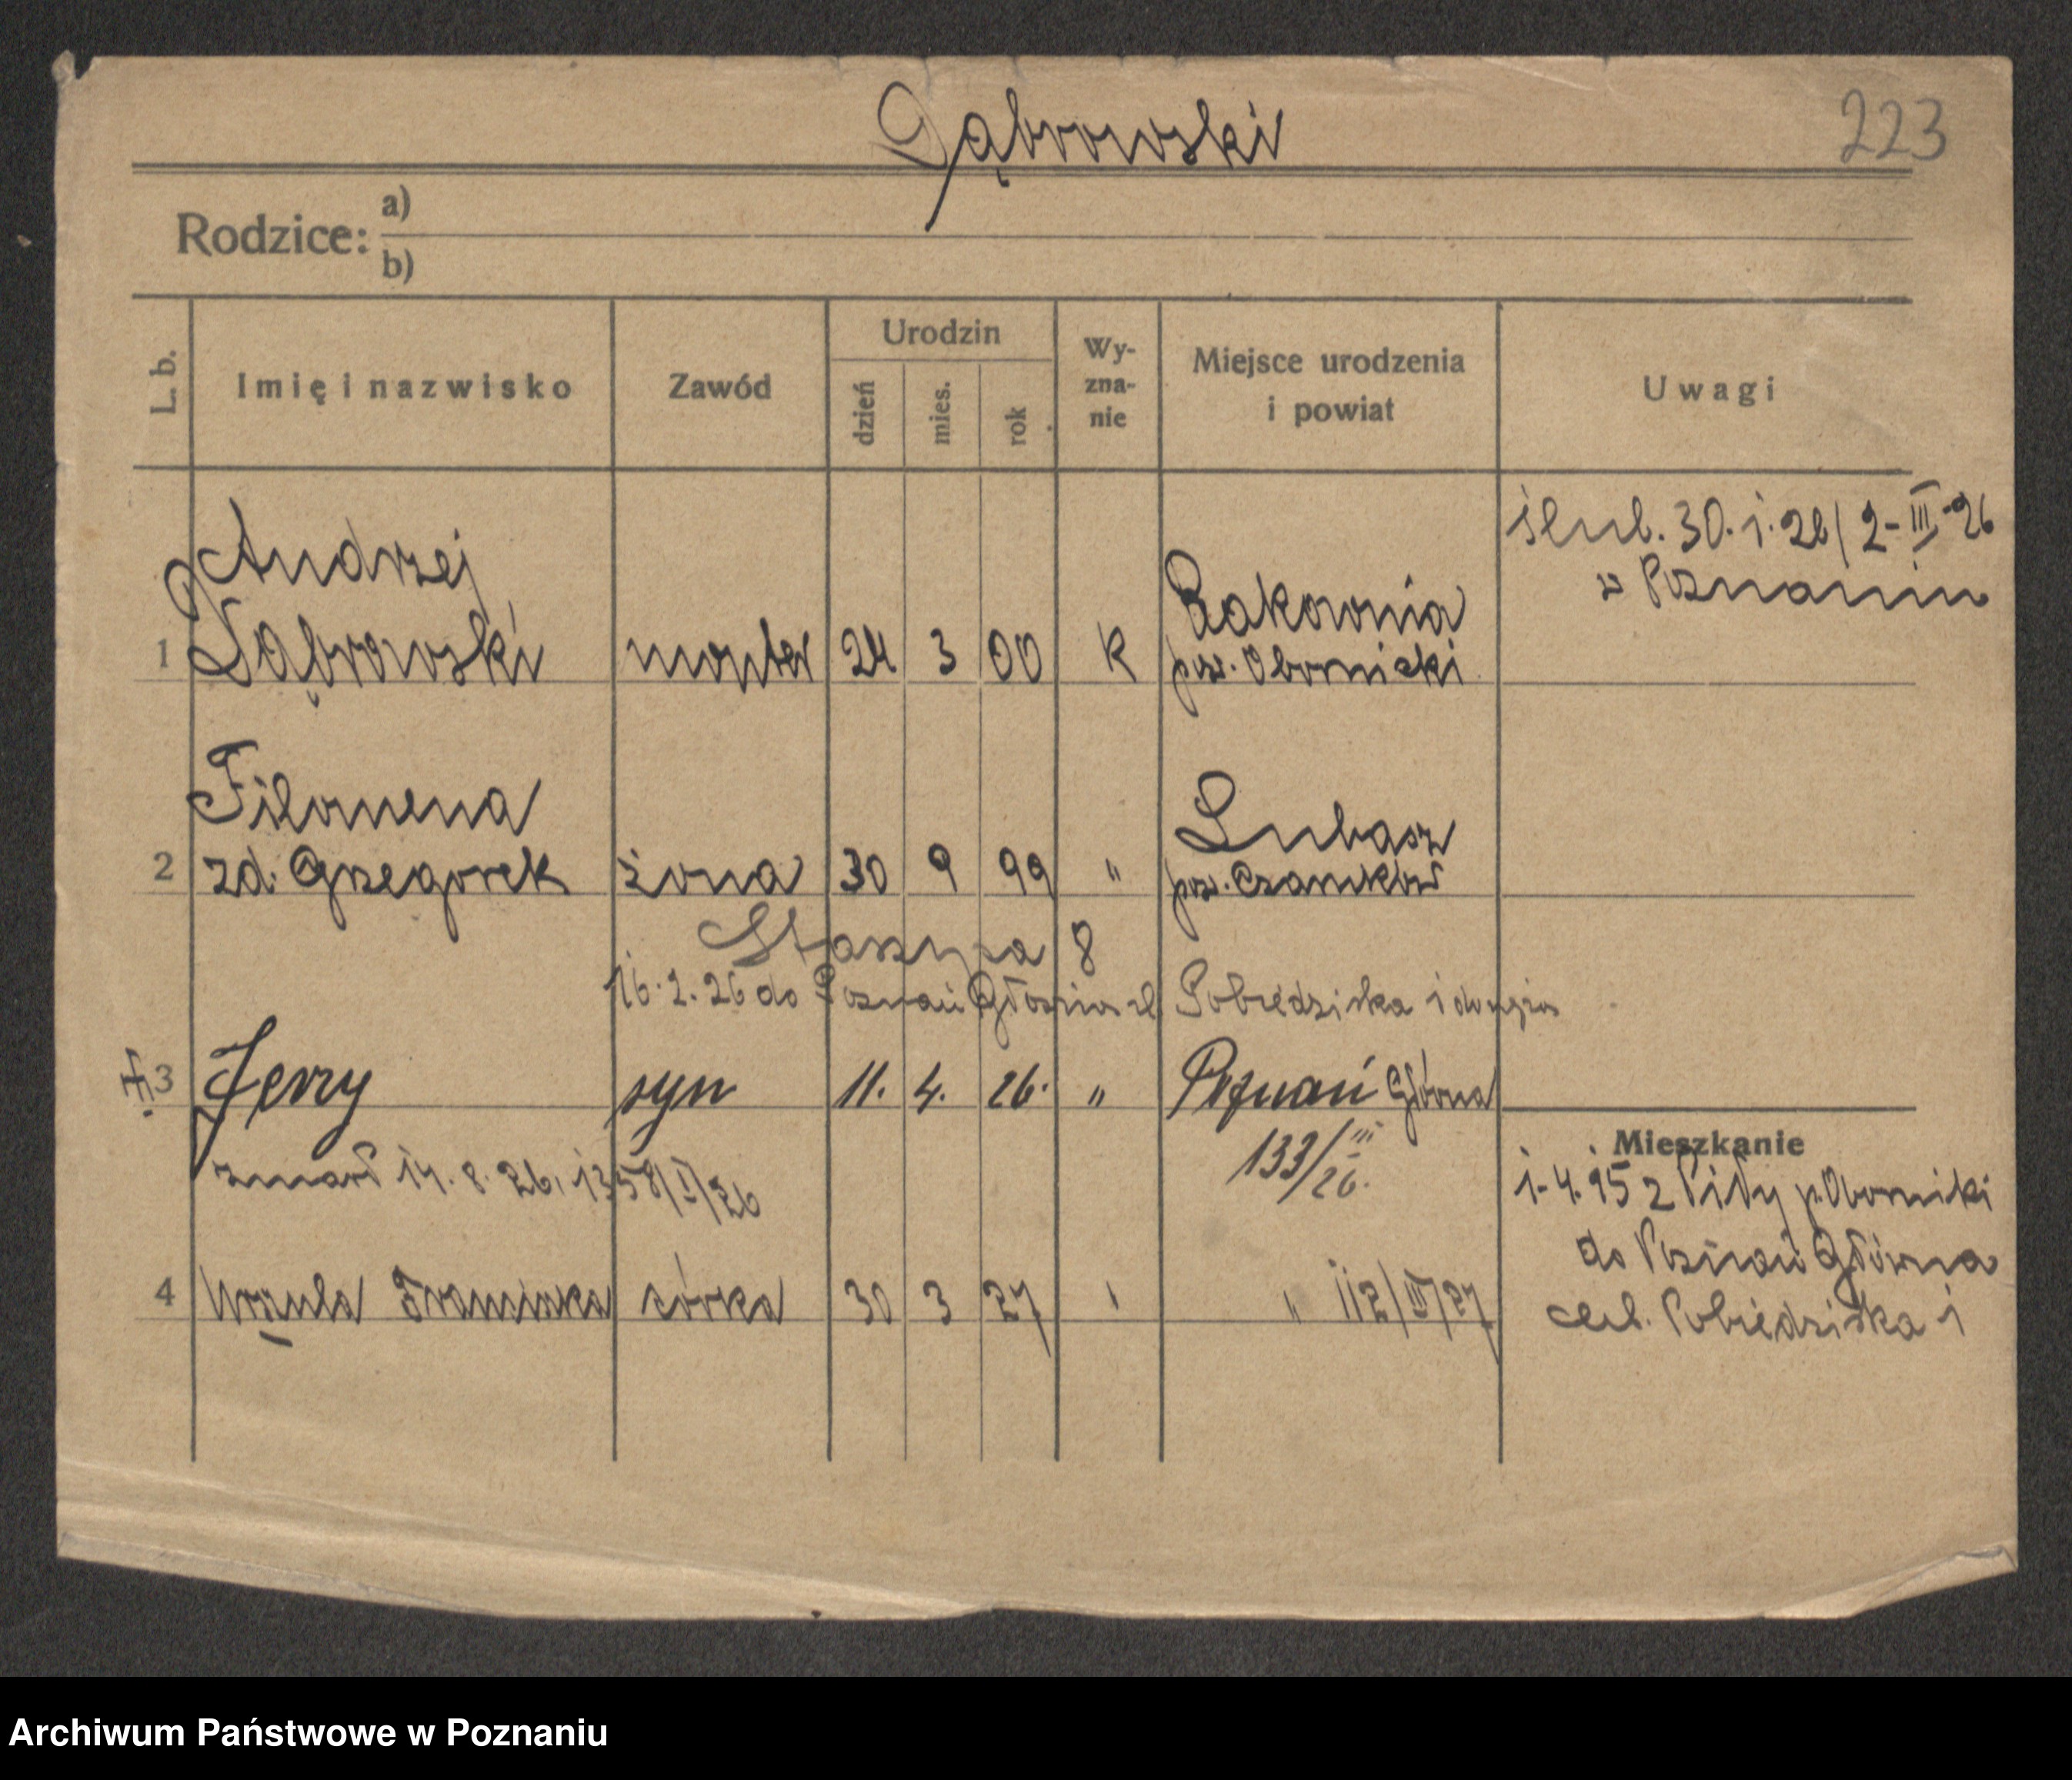 Dąbrowski
223
Rodzice: a)
b)
L. b. Imię i nazwisko Zawód Urodzin dzień mies. rok Wyznanie Miejsce urodzenia i powiat Uwagi
ślub. 30. i. 26 / 2-III-26
w Poznaniu
Andrzej Rakownia
1 Dąbrowski monter 24 3 00 K pow. Obornicki
Filomena Lubasz
2 zd. Grzegorek żona 30 9 99 " pow. Czarnków
Staszyca 8
16. 2. 26 do Poznań Pobiedziska 1
3 Jerzy syn 11. 4. 26. " Poznań Główna
133/III/26.
zmarł 14. 8. 26, 1358/I/26
4 Urszula Franciszka córka 30 3 27 " " 112/III/27
Mieszkanie
1-4. 25 z Piły p. Oborniki
do Poznań Główna
Pobiedziska 1
Archiwum Państwowe w Poznaniu